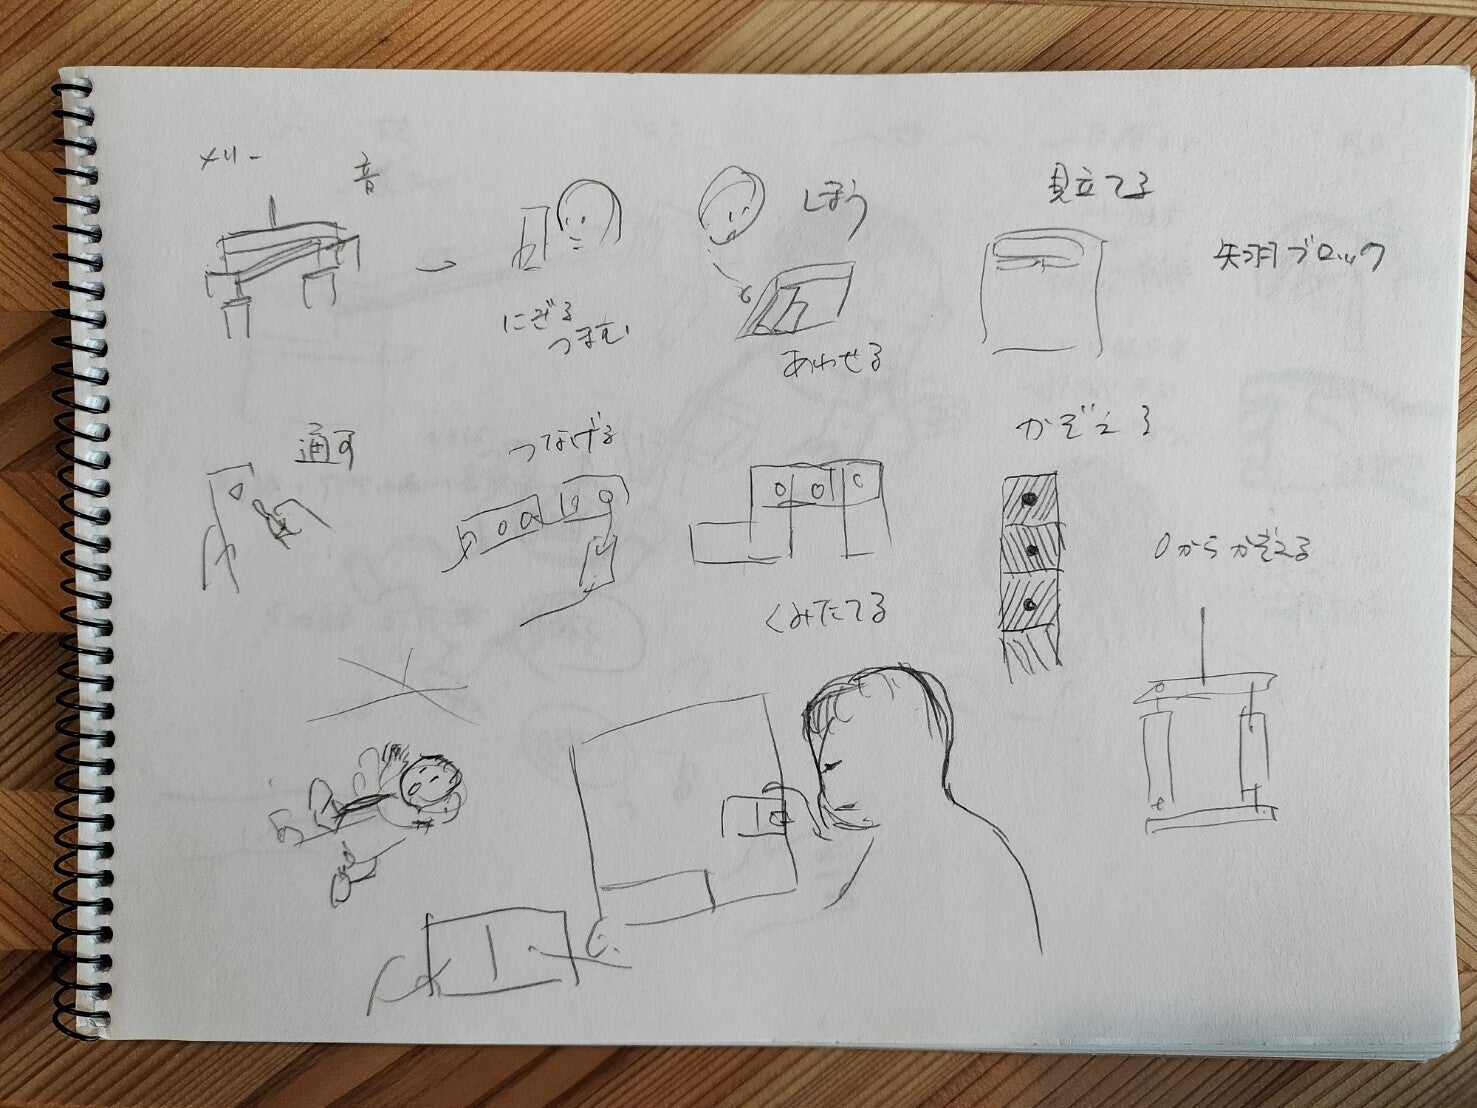 メリー
音
にぎる
つまむ
しまう
あわせる
見立てる
矢羽ブロック
通す
つなげる
くみたてる
かぞえる
0からかぞえる